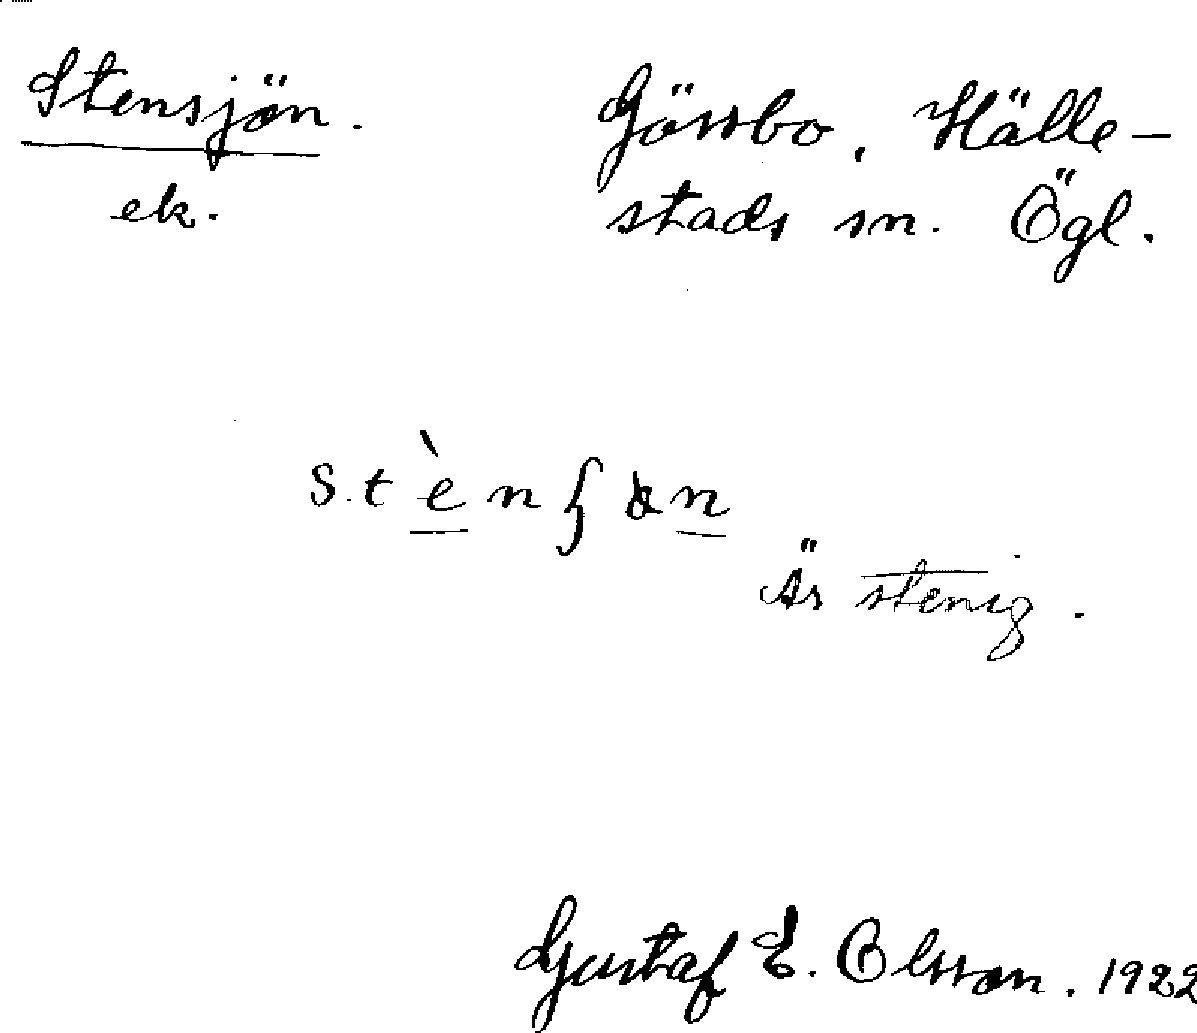 Stensjön.
ek.
Gössbo, Hälle-
stads sn. Ögl.
Är stenig.
Gustaf E. Olsson. 1922